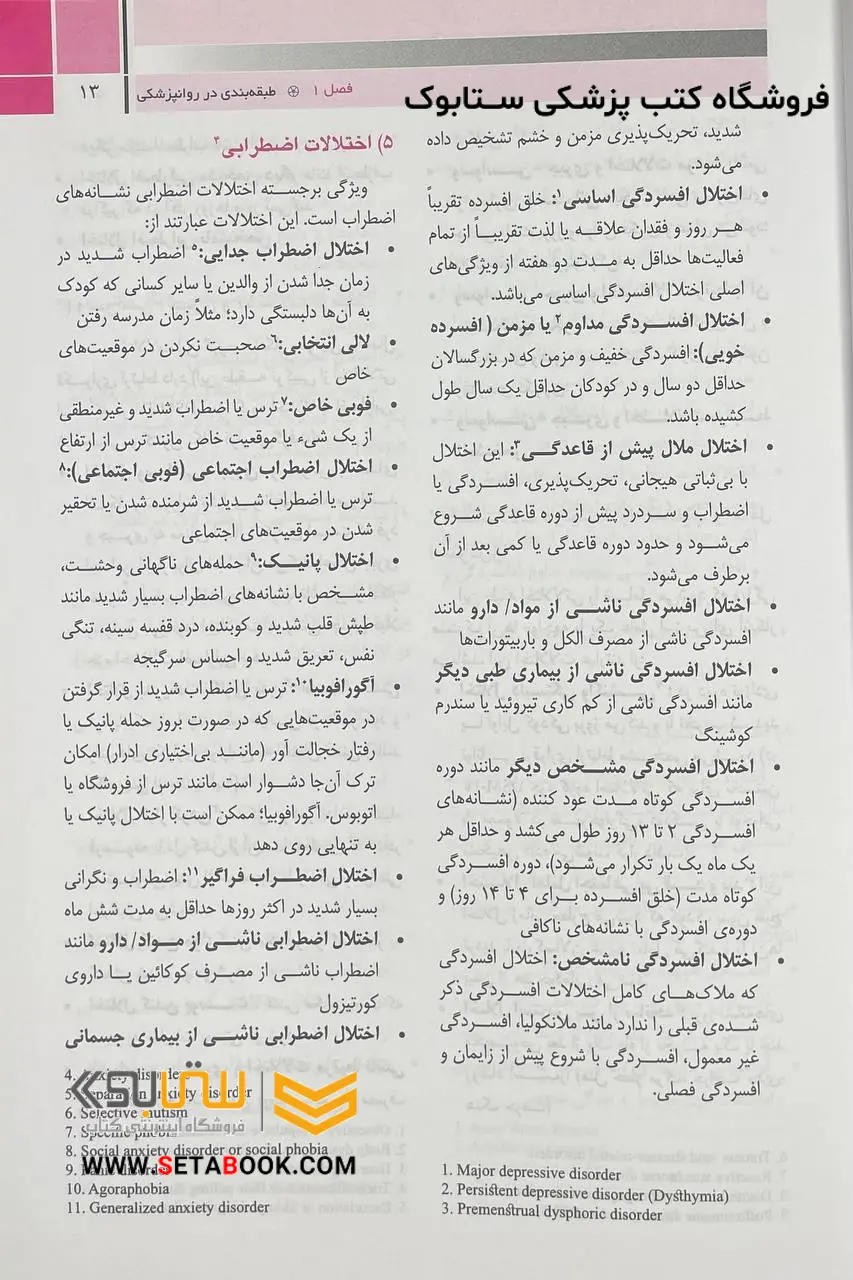 فروشگاه کتب پزشکی ستابوک
فصل ۱ طبقه‌بندی در روانپزشکی ۱۳
شدید، تحریک‌پذیری مزمن و خشم تشخیص داده
می‌شود.
• اختلال افسردگی اساسی۱: خلق افسرده تقریباً
هر روز و فقدان علاقه یا لذت تقریباً از تمام
فعالیت‌ها حداقل به مدت دو هفته از ویژگی‌های
اصلی اختلال افسردگی اساسی می‌باشد.
• اختلال افسردگی مداوم۲ یا مزمن ( افسرده
خویی): افسردگی خفیف و مزمن که در بزرگسالان
حداقل دو سال و در کودکان حداقل یک سال طول
کشیده باشد.
• اختلال ملال پیش از قاعدگی۳: این اختلال
با بی‌ثباتی هیجانی، تحریک‌پذیری، افسردگی یا
اضطراب و سردرد پیش از دوره قاعدگی شروع
می‌شود و حدود دوره قاعدگی یا کمی بعد از آن
برطرف می‌شود.
• اختلال افسردگی ناشی از مواد/ دارو مانند
افسردگی ناشی از مصرف الکل و باربیتورات‌ها
• اختلال افسردگی ناشی از بیماری طبی دیگر
مانند افسردگی ناشی از کم کاری تیروئید یا سندرم
کوشینگ
• اختلال افسردگی مشخص دیگر مانند دوره
افسردگی کوتاه مدت عود کننده (نشانه‌های
افسردگی ۲ تا ۱۳ روز طول می‌کشد و حداقل هر
یک ماه یک بار تکرار می‌شود)، دوره افسردگی
کوتاه مدت (خلق افسرده برای ۴ تا ۱۴ روز) و
دوره‌ی افسردگی با نشانه‌های ناکافی
• اختلال افسردگی نامشخص: اختلال افسردگی
که ملاک‌های کامل اختلالات افسردگی ذکر
شده‌ی قبلی را ندارد مانند ملانکولیا، افسردگی
غیر معمول، افسردگی با شروع پیش از زایمان و
افسردگی فصلی.
1. Major depressive disorder
2. Persistent depressive disorder (Dysthymia)
3. Premenstrual dysphoric disorder
۵) اختلالات اضطرابی۴
ویژگی برجسته اختلالات اضطرابی نشانه‌های
اضطراب است. این اختلالات عبارتند از:
• اختلال اضطراب جدایی:۵ اضطراب شدید در
زمان جدا شدن از والدین یا سایر کسانی که کودک
به آن‌ها دلبستگی دارد؛ مثلاً زمان مدرسه رفتن
• لالی انتخابی:۶ صحبت نکردن در موقعیت‌های
خاص
• فوبی خاص:۷ ترس یا اضطراب شدید و غیرمنطقی
از یک شیء یا موقعیت خاص مانند ترس از ارتفاع
• اختلال اضطراب اجتماعی (فوبی اجتماعی):۸
ترس یا اضطراب شدید از شرمنده شدن یا تحقیر
شدن در موقعیت‌های اجتماعی
• اختلال پانیک:۹ حمله‌های ناگهانی وحشت،
مشخص با نشانه‌های اضطراب بسیار شدید مانند
طپش قلب شدید و کوبنده، درد قفسه سینه، تنگی
نفس، تعریق شدید و احساس سرگیجه
• آگورافوبیا۱۰: ترس یا اضطراب شدید از قرار گرفتن
در موقعیت‌هایی که در صورت بروز حمله پانیک یا
رفتار خجالت آور (مانند بی‌اختیاری ادرار) امکان
ترک آن‌جا دشوار است مانند ترس از فروشگاه یا
اتوبوس. آگورافوبیا؛ ممکن است با اختلال پانیک یا
به تنهایی روی دهد
• اختلال اضطراب فراگیر۱۱: اضطراب و نگرانی
بسیار شدید در اکثر روزها حداقل به مدت شش ماه
• اختلال اضطرابی ناشی از مواد/ دارو مانند
اضطراب ناشی از مصرف کوکائین یا داروی
کورتیزول
• اختلال اضطرابی ناشی از بیماری جسمانی
4. Anxiety disorder
5. Separation anxiety disorder
6. Selective mutism
7. Specific phobia
8. Social anxiety disorder or social phobia
9. Panic disorder
10. Agoraphobia
11. Generalized anxiety disorder
ستابوک
فروشگاه اینترنتی کتاب
WWW.SETABOOK.COM